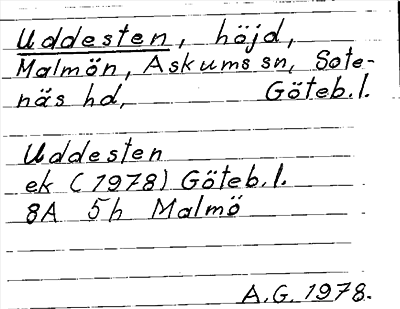 Uddesten, höjd,
Malmön, Askums sn, Sote-
näs hd, Göteb.l.
Uddesten
ek (1978) Göteb.l.
8A 5h Malmö
A.G. 1978.